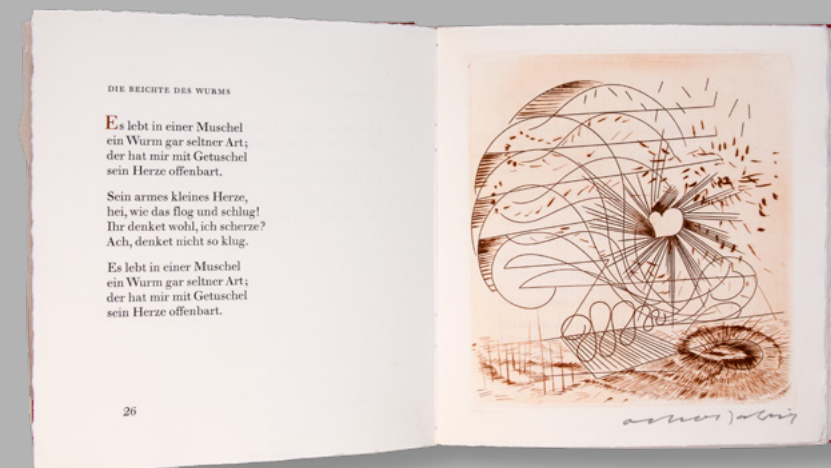 DIE BEICHTE DES WURMS
Es lebt in einer Muschel
ein Wurm gar seltner Art;
der hat mir mit Getuschel
sein Herze offenbart.
Sein armes kleines Herze,
hei, wie das flog und schlug!
Ihr denket wohl, ich scherze?
Ach, denket nicht so klug.
Es lebt in einer Muschel
ein Wurm gar seltner Art;
der hat mir mit Getuschel
sein Herze offenbart.
26